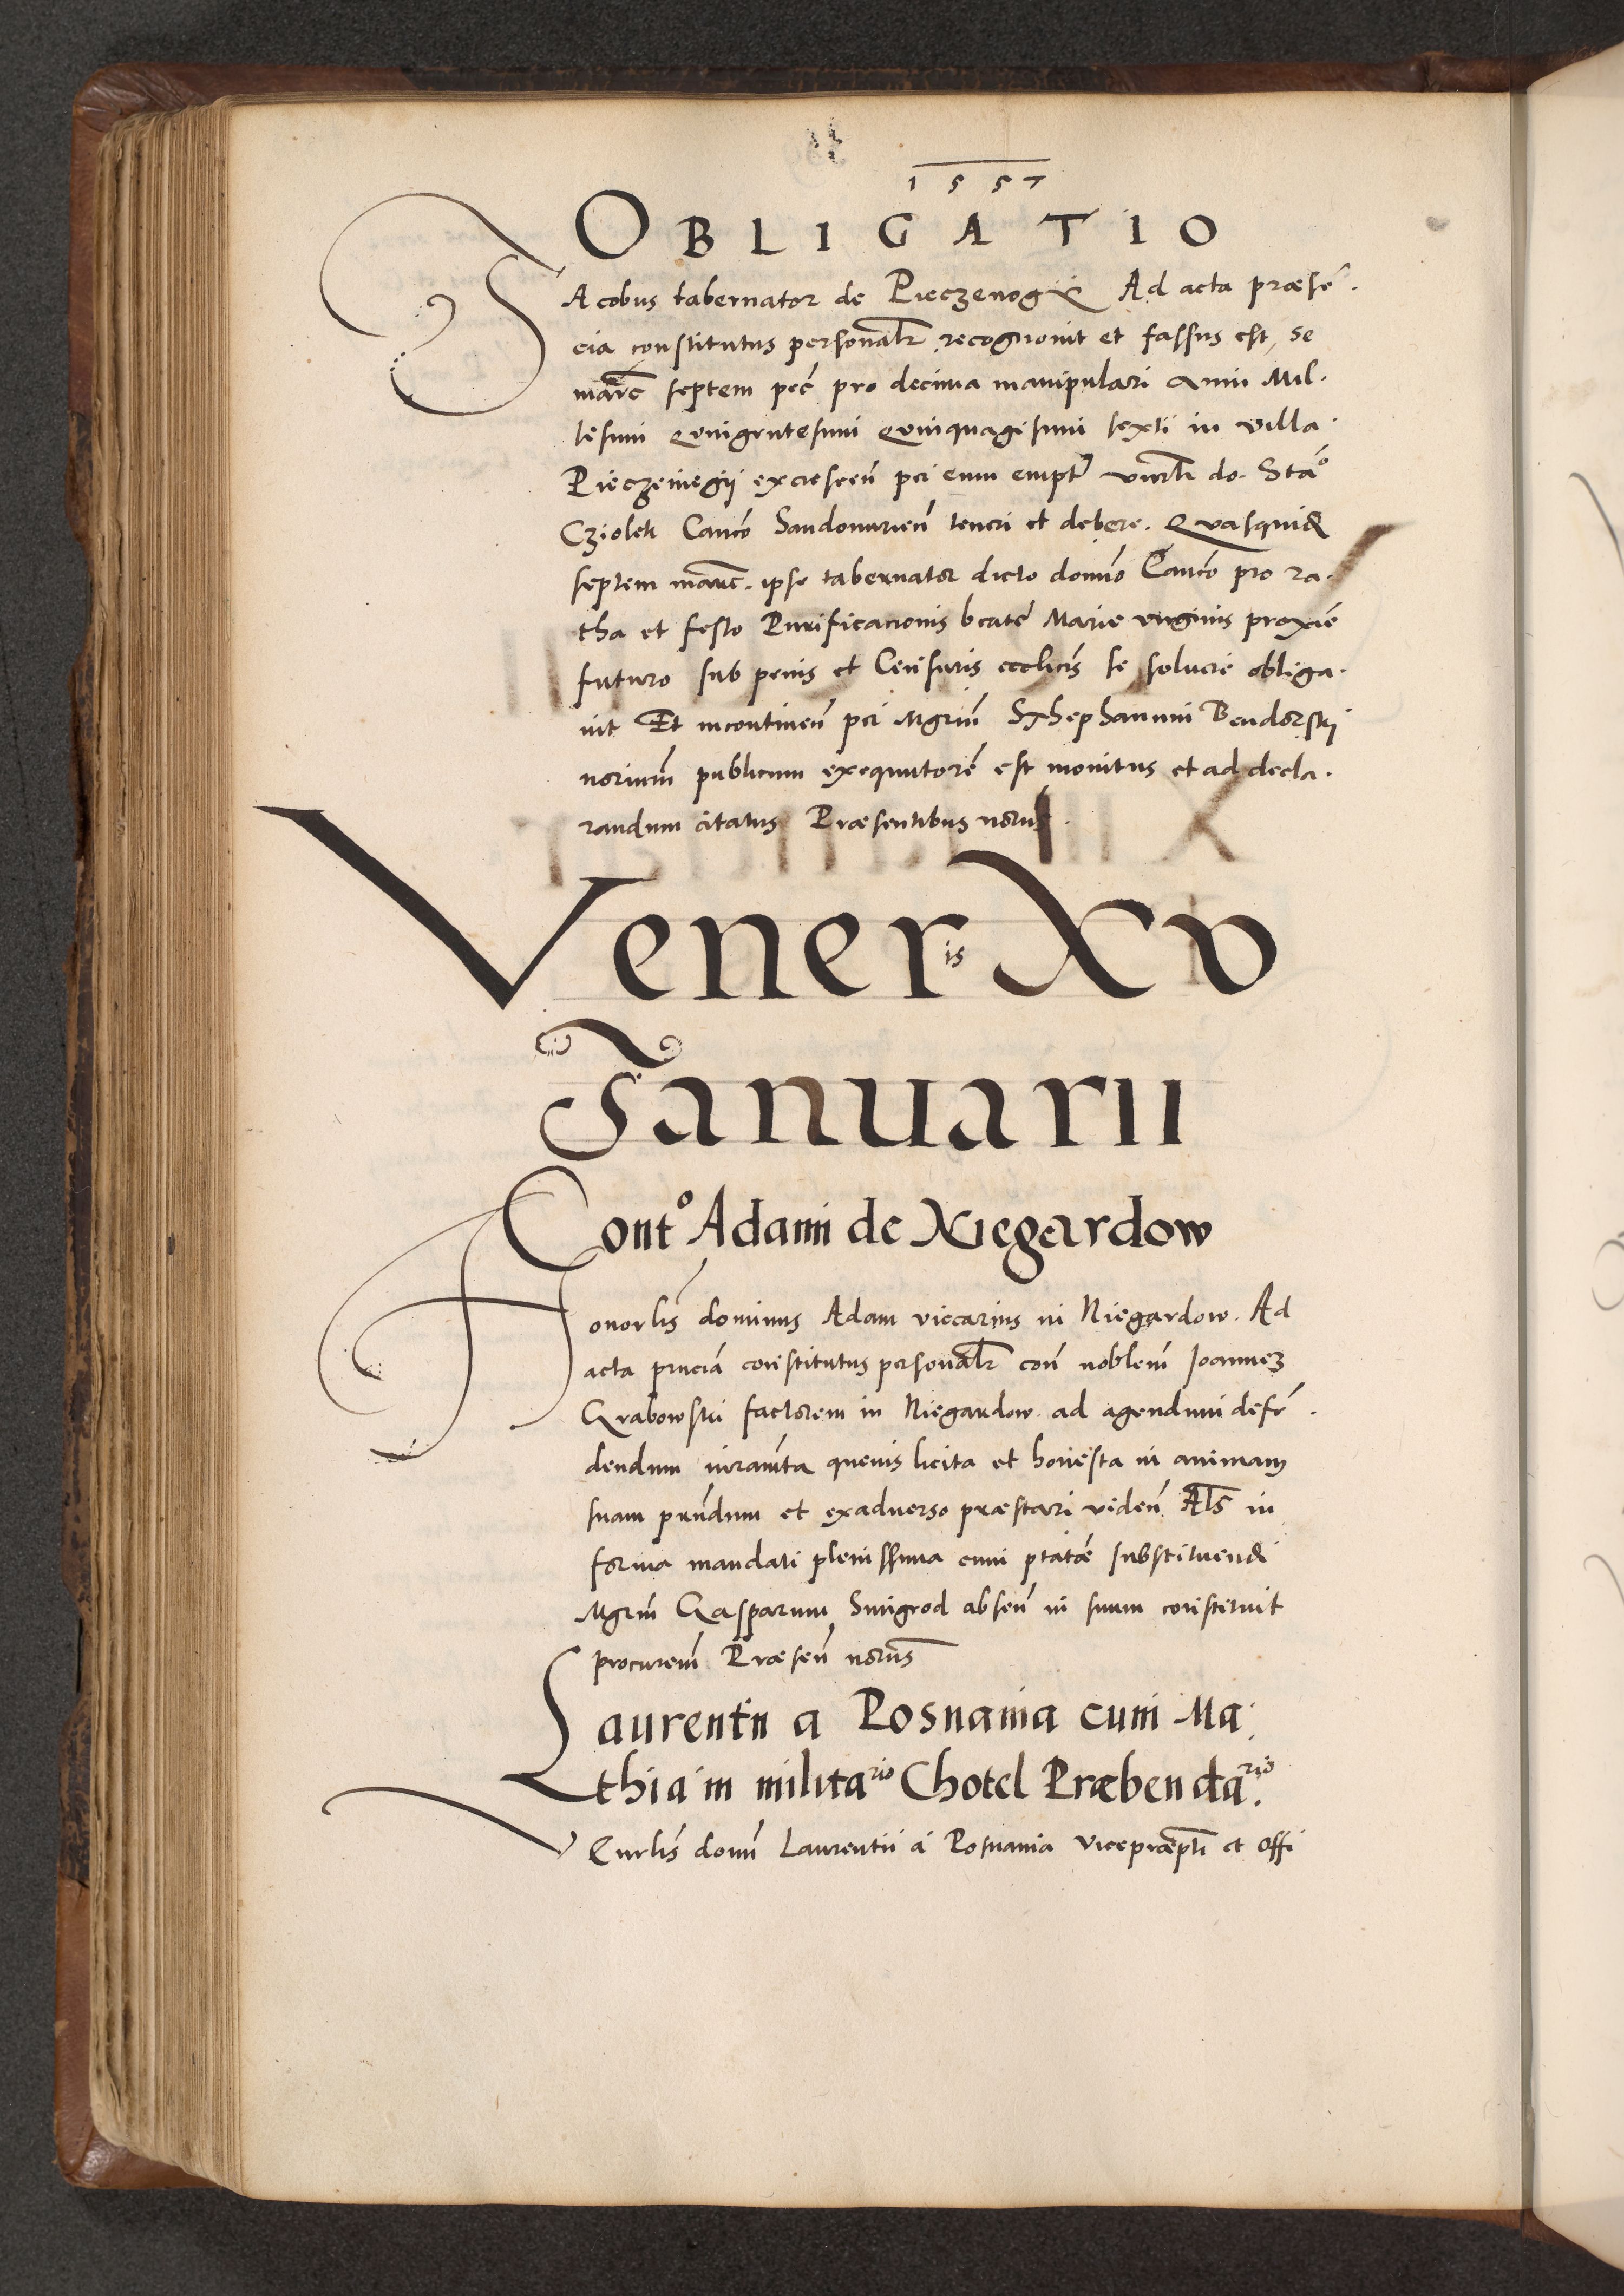 1557
OBLIGATIO
IAcobus tabernator de Pieczenogy Ad acta præsē.
cia constitutus personalr̄ recognovit et fassus est, se
marc̄ septem pec̄ pro decima manipulari anni Mil.
lesimi Quingentesimi Quinquagesimi sexti in villa
Pieczeniegij excrescen̄ per eum empt̄ vnrli do. Stāo
Cziolek Canco Sandomirien̄ teneri et debere. Quasquid
septem marc̄. ipse tabernator dicto domno Canco pro ra.
tha et festo Purificacionis beate Marie virginis proxie
futuro sub penis et Censuris ecclicis se soluere obliga.
uit Et incontinen̄ per Mgrum̄ Sthephanum Bendorski
norium̄ publicum exequutorē est monitus et ad decla.
randum citatus Præsentibus norus.
Veneris XV
Ianuarii
Conto Adami de Niegardow
Honorlis̄ dominus Adam viccarius in Niegardow. Ad
acta prnciā constitutus personalr̄ con̄ noblem̄ Joannez
Grabowski factorem in Niegardow ad agendum defen̄.
dendum iuramta quevis licita et honesta in animam
suam prn̄dum et exadverso præstari viden̄. Als̄ in
forma mandati plenissima cum ptatē substituendi
Mgrm̄ Gasparum Smigrod absen̄ in suum constituit
procurem̄ Præsen̄ norus̄
Laurentii a Posnania cum Ma:
thia in militario Chotel Præbendario.
Vnrlis̄ domn̄ Laurentii a Posnania vicepræpti et offi